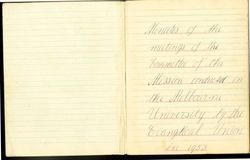 Minutes of the
meetings of the
Committee of the
Mission conducted in
the Melbourne
University by the
Evangelical Union
in 1953